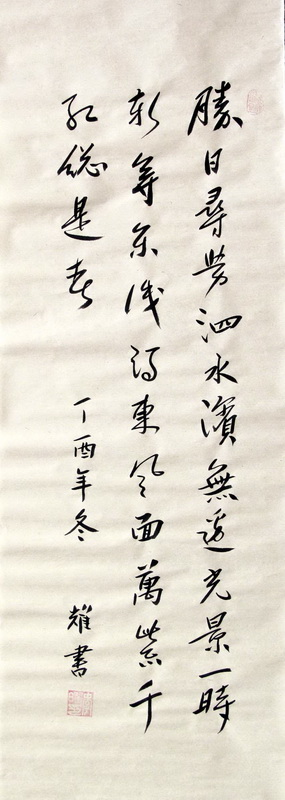 勝日尋芳泗水濱無邊光景一時
新等閒識得東風面萬紫千
紅總是春 丁酉年冬 書